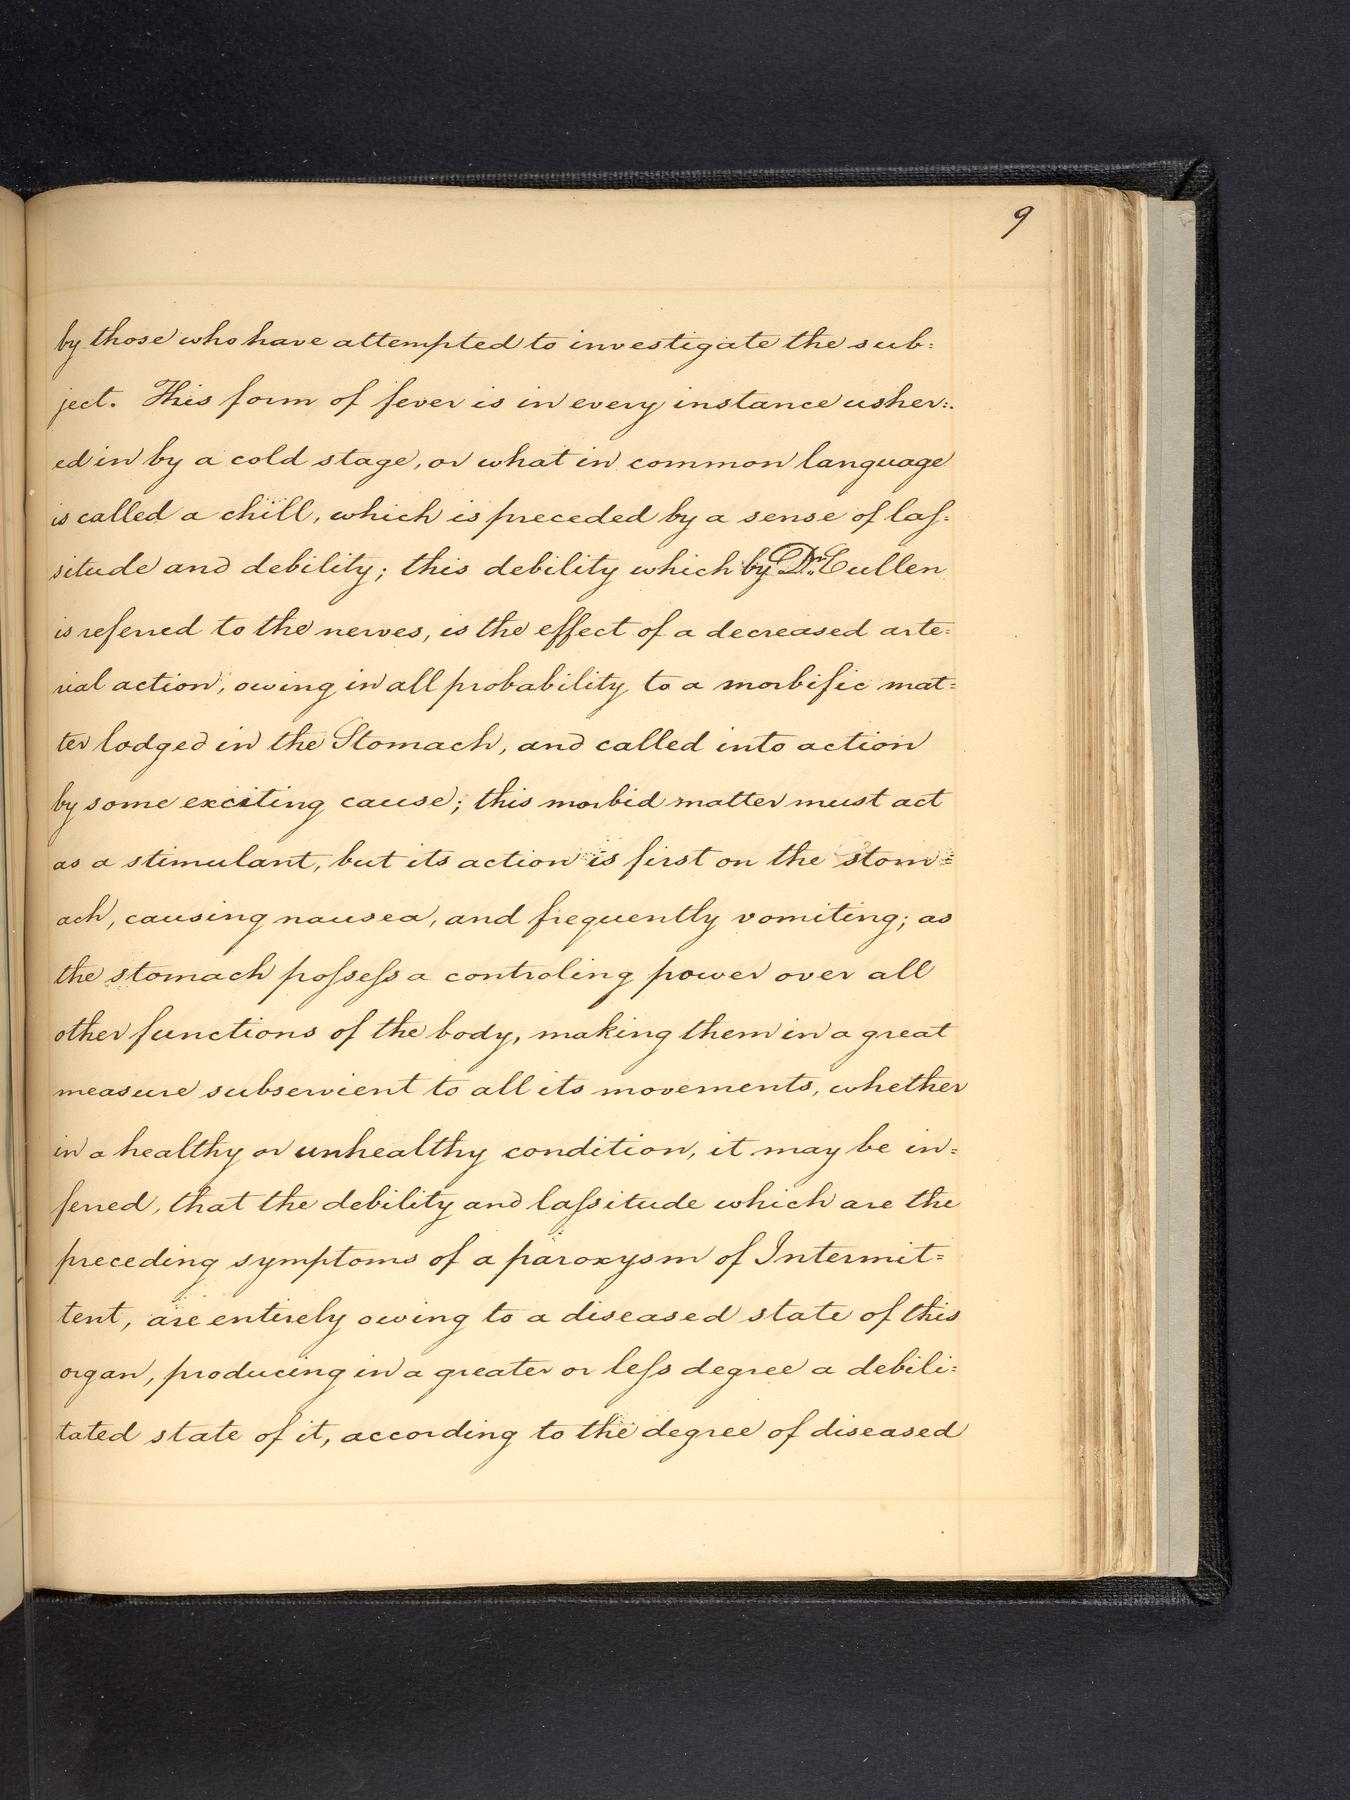 9
by those who have attempted to investigate the sub=
ject. This form of fever is in every instance usher=
ed in by a cold stage, or what in common language
is called a chill, which is preceded by a sense of laſ=
situde and debility; this debility which by Dr. Cullen
is referred to the nerves, is the effect of a decreased arte=
rial action, owing in all probability to a morbific mat=
ter lodged in the Stomach, and called into action
by some exciting cause; this morbid matter must act
as a stimulant, but its action is first on the stom=
ach, causing nausea, and frequently vomiting; as
the stomach poſseſs a controling power over all
other functions of the body, making them in a great
measure subservient to all its movements, whether
in a healthy or unhealthy condition, it may be in=
ferred, that the debility and laſsitude which are the
preceding symptoms of a paroxysm of Intermit=
tent, are entirely owing to a diseased state of this
organ, producing in a greater or leſs degree a debili=
tated state of it, according to the degree of diseased